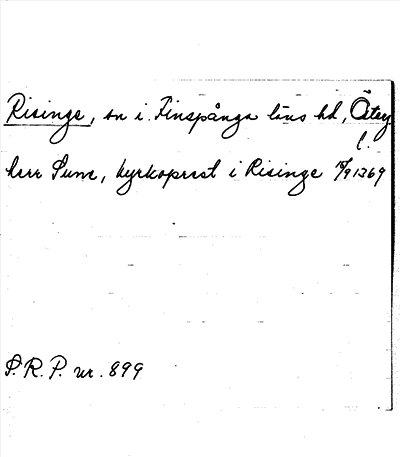 Risinge, sn i Finspånga läns hd, Österg.
l.
herr Sune, kyrkoprest i Risinge 15/9 1369
S.R.P. nr. 899